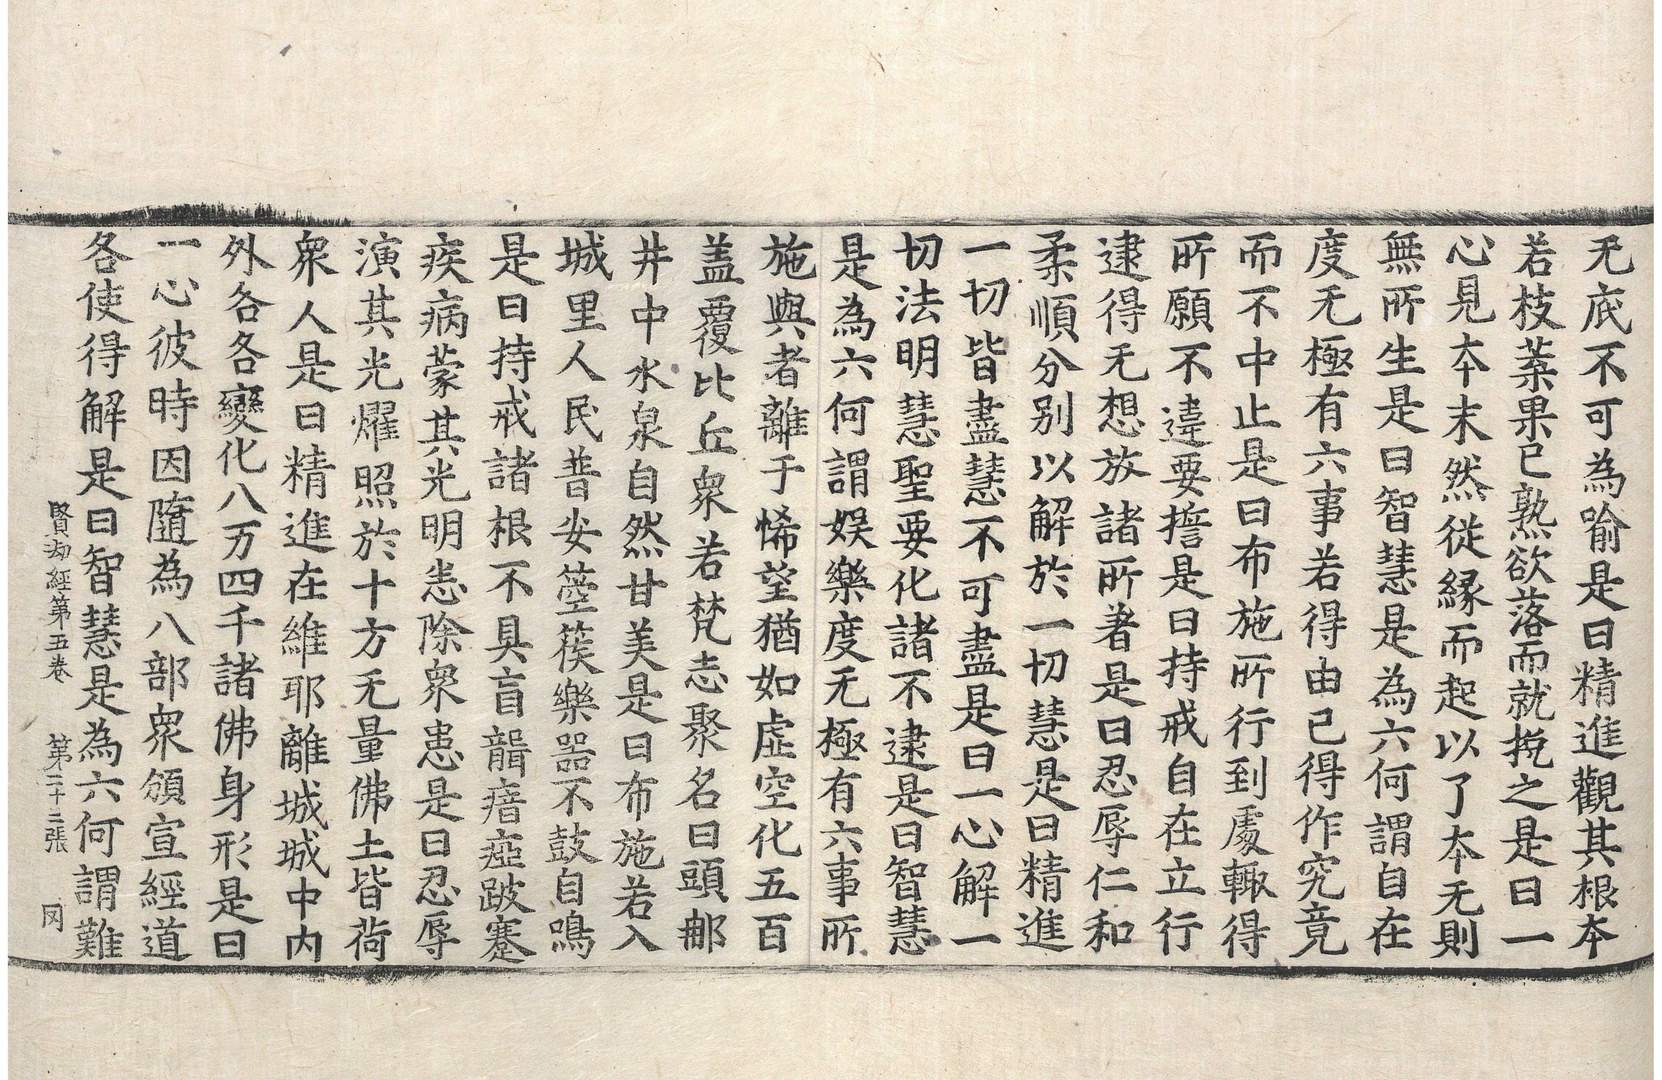 无底不可為喻是曰精進觀其根本
若枝葉果已熟欲落而就挩之是曰一
心見本末然従縁而起以了本无則
無所生是曰智慧是為六何謂自在
度无極有六事若得由已得作究竟
而不中止是曰布施所行到處輙得
所願不違要誓是曰持戒自在立行
逮得无想放諸所著是曰忍辱仁和
柔順分别以解於一切慧是曰精進
一切皆盡慧不可盡是曰一心解一
切法明慧聖要化諸不逮是曰智慧
是為六何謂娱樂度无極有六事所
施與者離于悕望猶如虛空化五百
盖覆比丘衆若梵志聚名曰頭郍
井中水泉自然甘美是曰布施若入
城里人民普安箜篌樂噐不鼓自鳴
是曰持戒諸根不具盲聾瘖瘂跛蹇
疾病蒙其光明恙除衆患是曰忍辱
演其光燿照於十方无量佛土皆荷
衆人是曰精進在維耶離城城中内
外各各變化八万四千諸佛身形是曰
一心彼時因隨為八部衆頒宣經道
各使得解是曰智慧是為六何謂難
賢劫經第五卷 第二十三張 罔